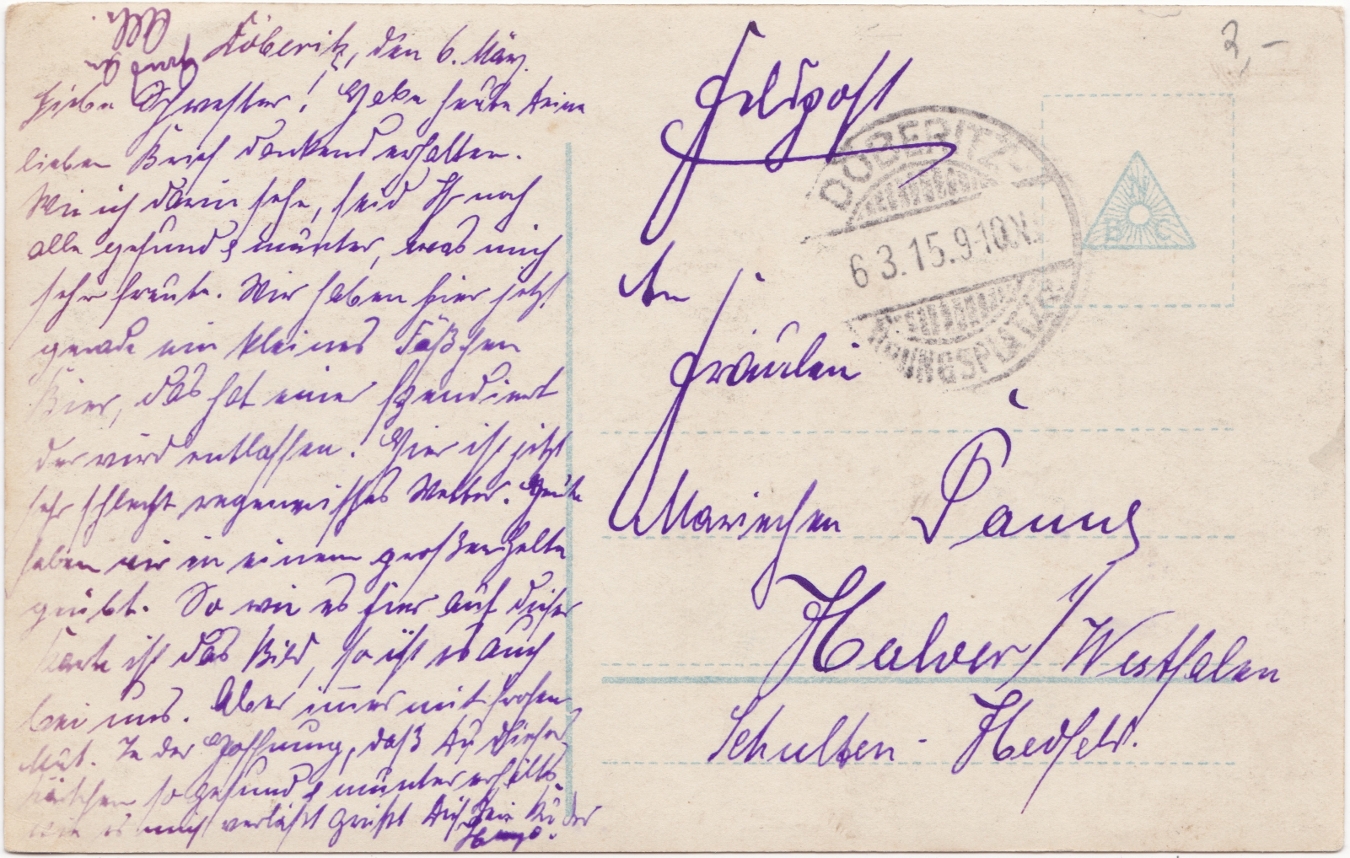 Döberitz, den 6. März.
Liebe Schwester! Habe heute Deine
lieben Brief dankend erhalten.
Wie ich darin sehe, seid Ihr noch
alle gesund & munter, was mich
sehr freute. Wir haben hier jetzt
gerade ein kleines Fäßchen
Bier, das hat einer spendiert
der wird entlassen! Hier ist jetzt
sehr schlecht regnerisches Wetter. Heute
haben wir in einem großen Zelte
geübt. So wie es hier auf dieser
Karte ist das Bild, so ist es auch
bei uns. Aber immer mit frohem
Mut. In der Hoffnung, daß Du dieses
Kärtchen so gesund & munter erhälts
wie es mich verläßt grüßt Dich Dein Bruder
Hugo.
Feldpost
DÖBERITZ
6 3.15.9-10.N.
ÜBUNGSPLATZ
N
B C
An
Fräulein
Mariechen
Halver/Westfalen
Schulten-Hedfeld.
3 –